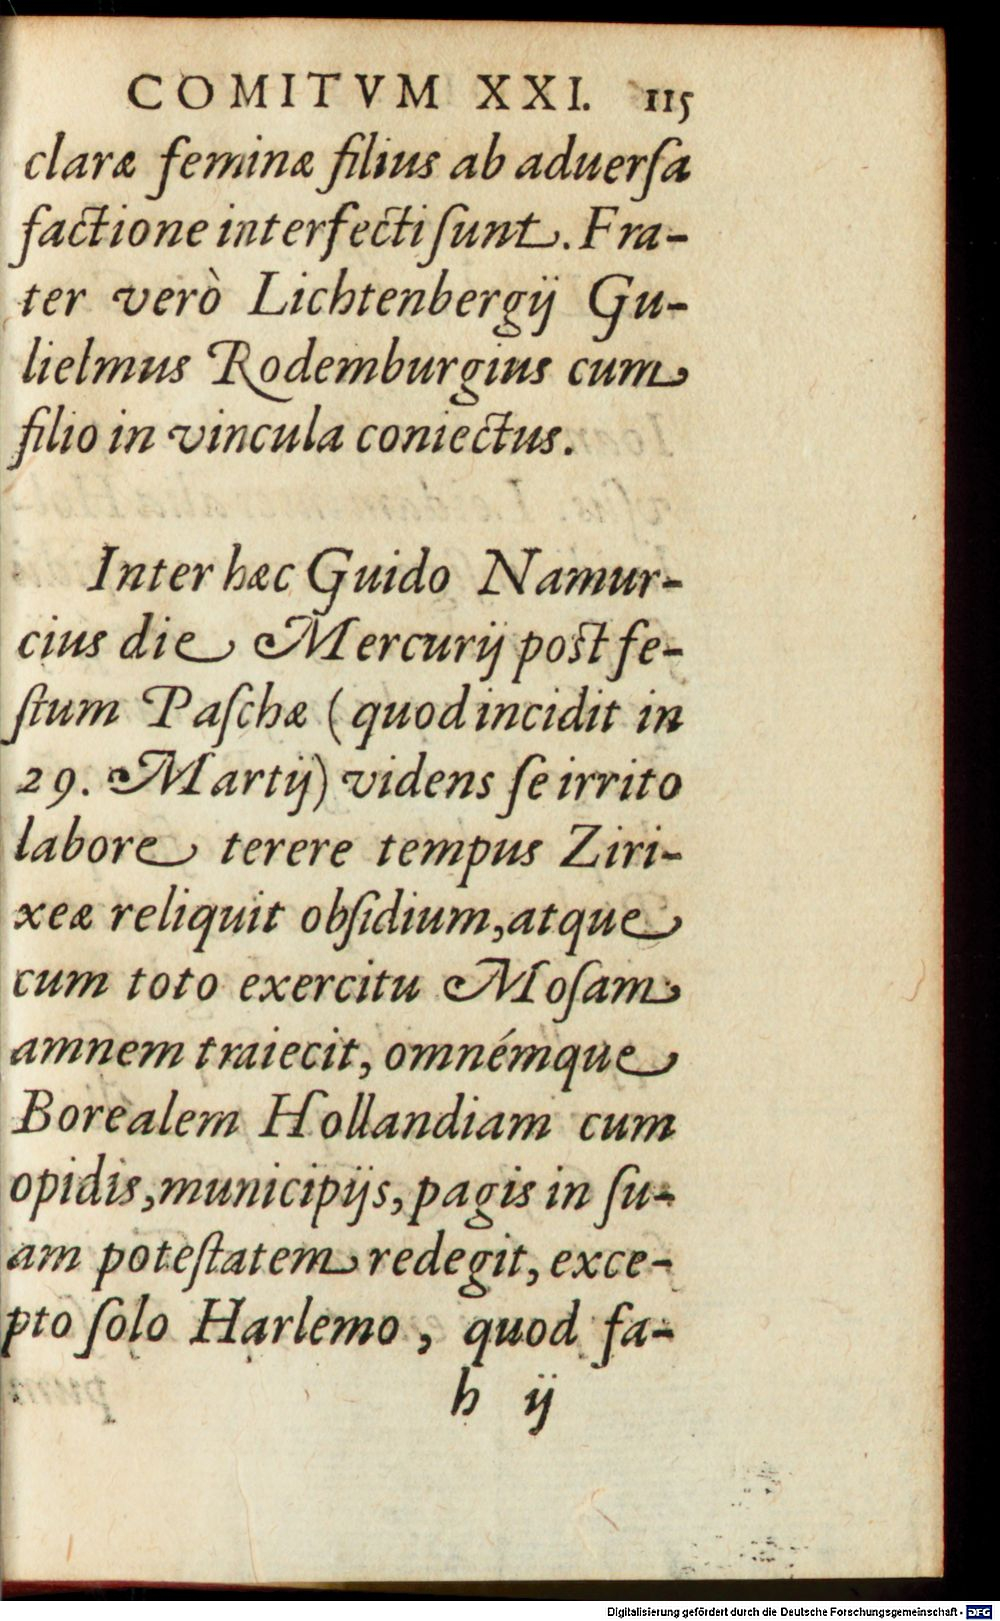 COMITVM XXI. 115
claræ feminæ filius ab aduerſa
factione interfecti ſunt. Fra-
ter verò Lichtenbergij Gu-
lielmus Rodemburgius cum
filio in vincula coniectus.
Inter hæc Guido Namur-
cius die Mercurij post fe-
ſtum Paſchæ (quod incidit in
29. Martij) videns ſe irrito
labore terere tempus Ziri-
xeæ reliquit obſidium, atque
cum toto exercitu Moſam
amnem traiecit, omnémque
Borealem Hollandiam cum
opidis, municipijs, pagis in ſu-
am poteſtatem redegit, exce-
pto ſolo Harlemo, quod fa-
h ij
Digitalisierung gefördert durch die Deutsche Forschungsgemeinschaft - DFG